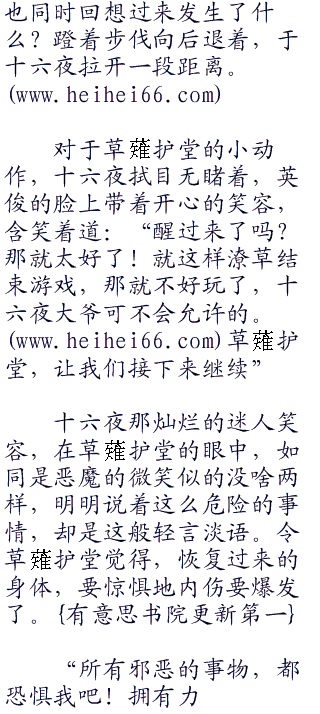 也同时回想过来发生了什
么？蹬着步伐向后退着，于
十六夜拉开一段距离。
(www.heihei66.com)
对于草薙护堂的小动
作，十六夜拭目无睹着，英
俊的脸上带着开心的笑容，
含笑着道：“醒过来了吗？
那就太好了！就这样潦草结
束游戏，那就不好玩了，十
六夜大爷可不会允许的。
(www.heihei66.com)草薙护
堂，让我们接下来继续”
十六夜那灿烂的迷人笑
容，在草薙护堂的眼中，如
同是恶魔的微笑似的没啥两
样，明明说着这么危险的事
情，却是这般轻言淡语。令
草薙护堂觉得，恢复过来的
身体，要惊惧地内伤要爆发
了。{有意思书院更新第一}
“所有邪恶的事物，都
恐惧我吧！拥有力